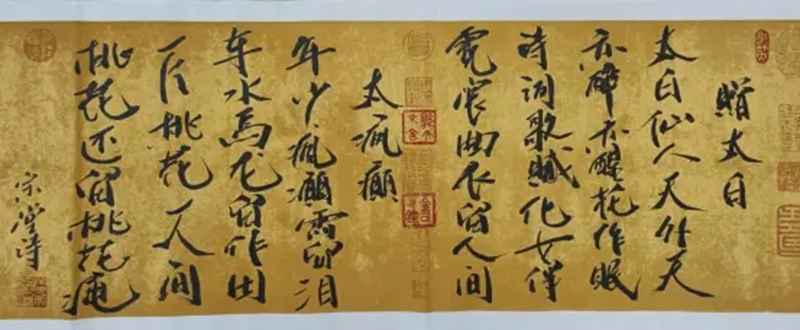 赠太白
太白仙人天外天
亦醉亦醒花作眠
诗词歌赋化女伴
霓裳曲衣留人间
太疯癫
年少疯癫雪泪
车水马龙留作田
一片桃花一人间
桃花还留桃花庵
宋滢诗